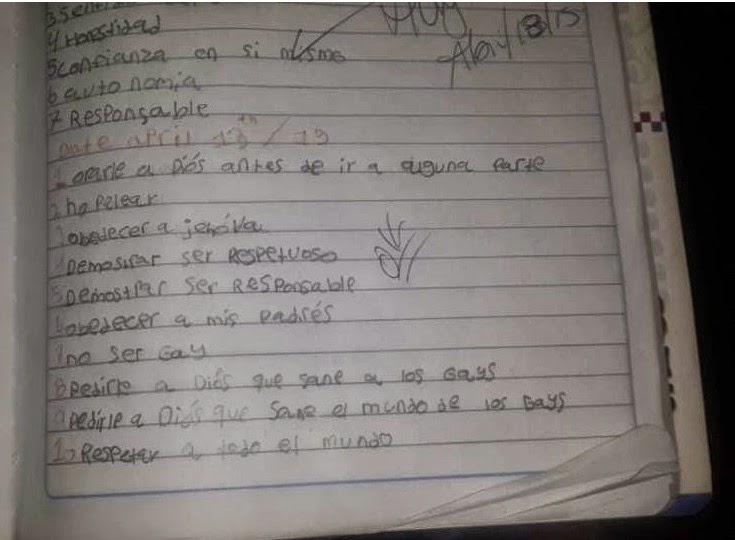 4 Honestidad
5 confianza en si mismo
6 autonomia
7 Responsable
Date april 13th / 15
1 orarle a Diós antes de ir a alguna parte
2 no Pelear
3 obedecer a jehóva
4 Demostrar ser Respetuoso
5 Demostrar ser Responsable
6 obedecer a mis padrés
7 no ser Gay
8 Pedirle a Diós que sane a los Gays
9 Pedirle a Diós que sane el mundo de los Gays
10 Respetar a todo el mundo